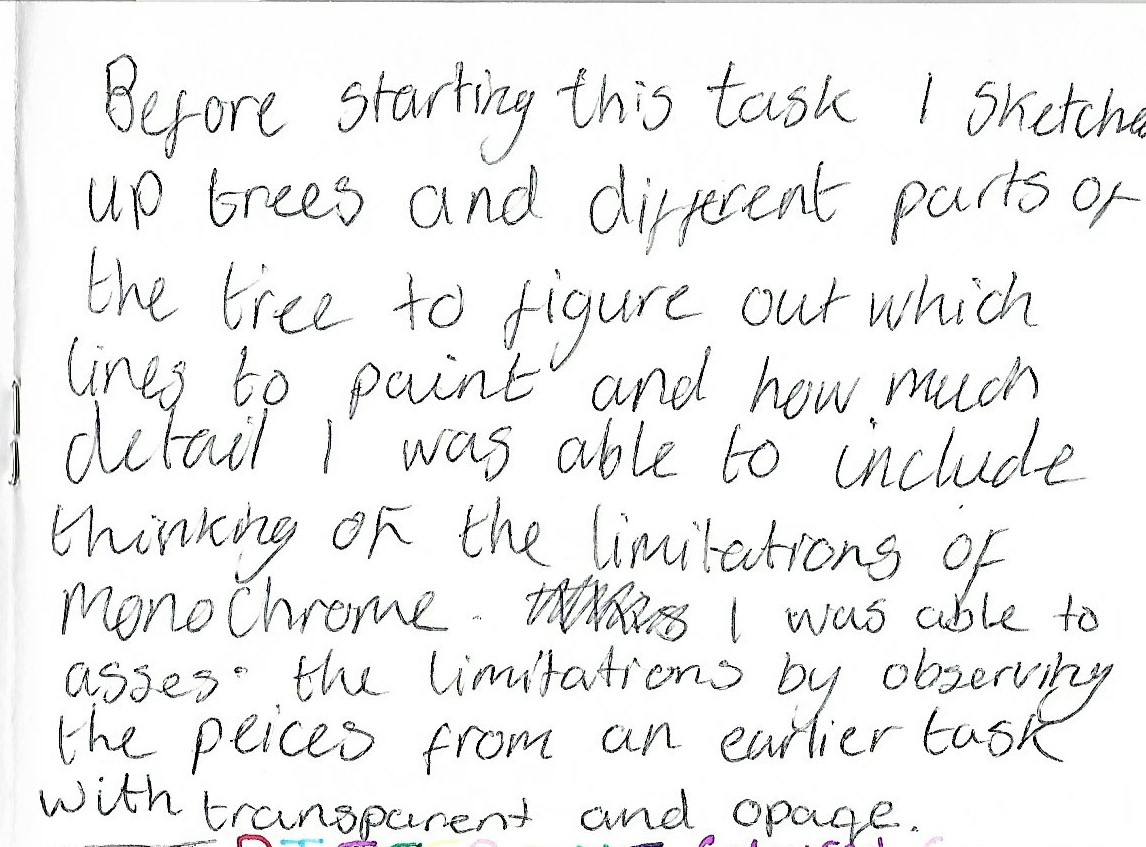 Before starting this task I sketche
up trees and different parts of
the tree to figure out which
lines to paint and how much
detail I was able to include
thinking of the limitations of
monochrome. I was able to
asses the limitations by observing
the peices from an earlier task
with transparent and opaqe.